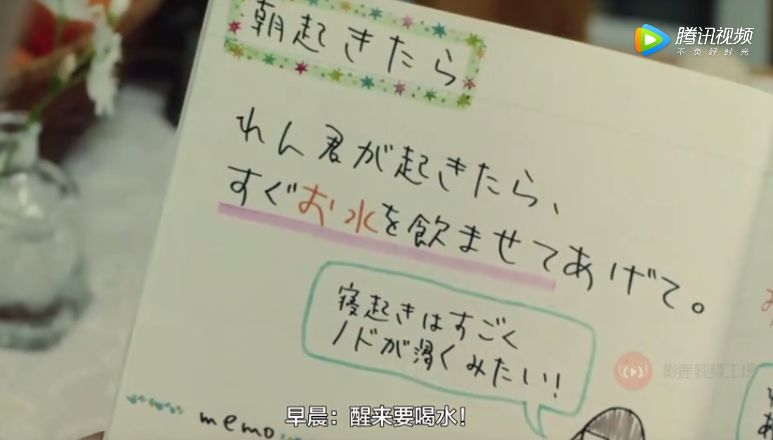 腾讯视频
不负好时光
朝起きたら
れん君が起きたら、
すぐお水を飲ませてあげて。
寝起きはすごく
ノドが渇くみたい!
memo
早晨：醒来要喝水！